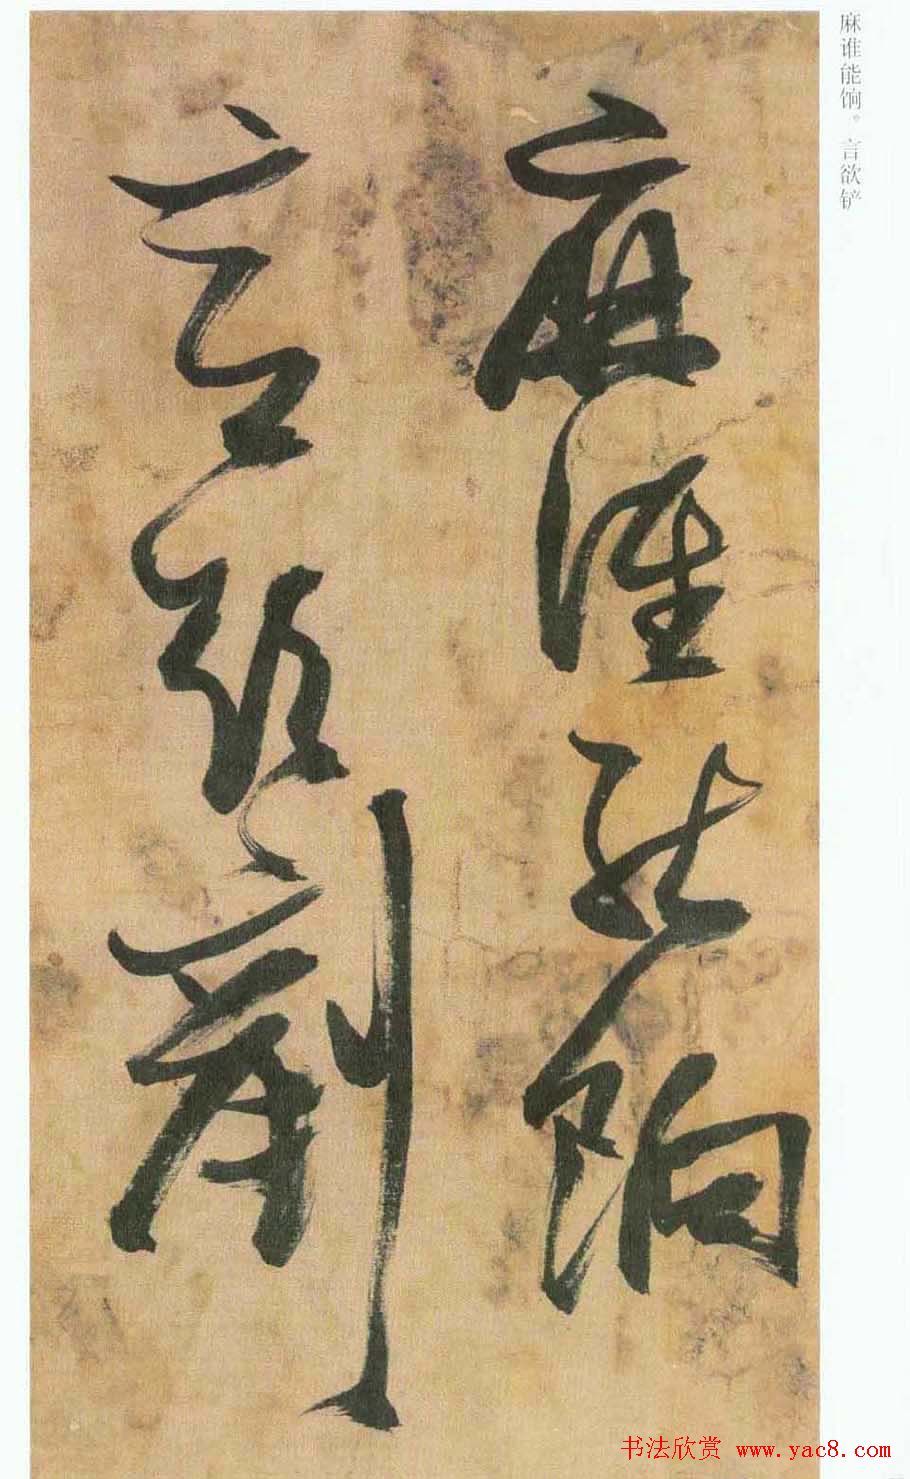 麻谁能饷。言欲铲
麻誰能餉
言欲剷
书法欣赏 www.yac8.com